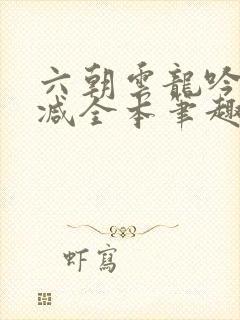 六朝雲龍吟
减全本筆趣
虾寫